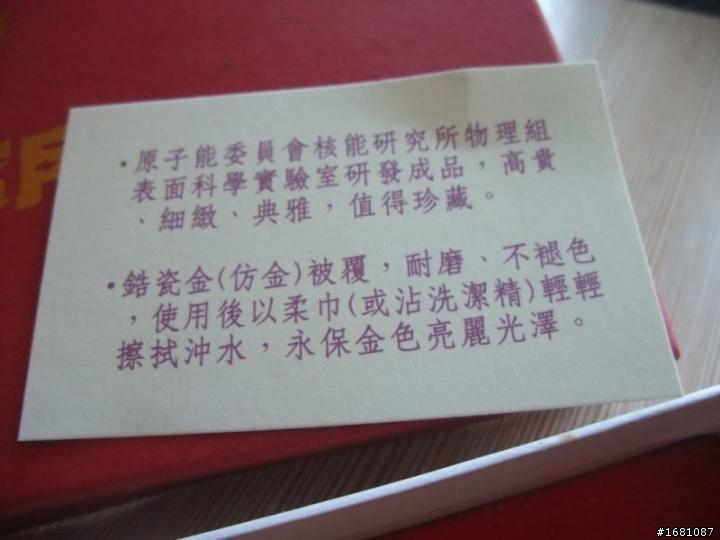 •原子能委員會核能研究所物理組
表面科學實驗室研發成品，高貴
、細緻、典雅，值得珍藏。
•鋯瓷金(仿金)被覆，耐磨、不褪色
，使用後以柔巾(或沾洗潔精)輕輕
擦拭沖水，永保金色亮麗光澤。
#1681087